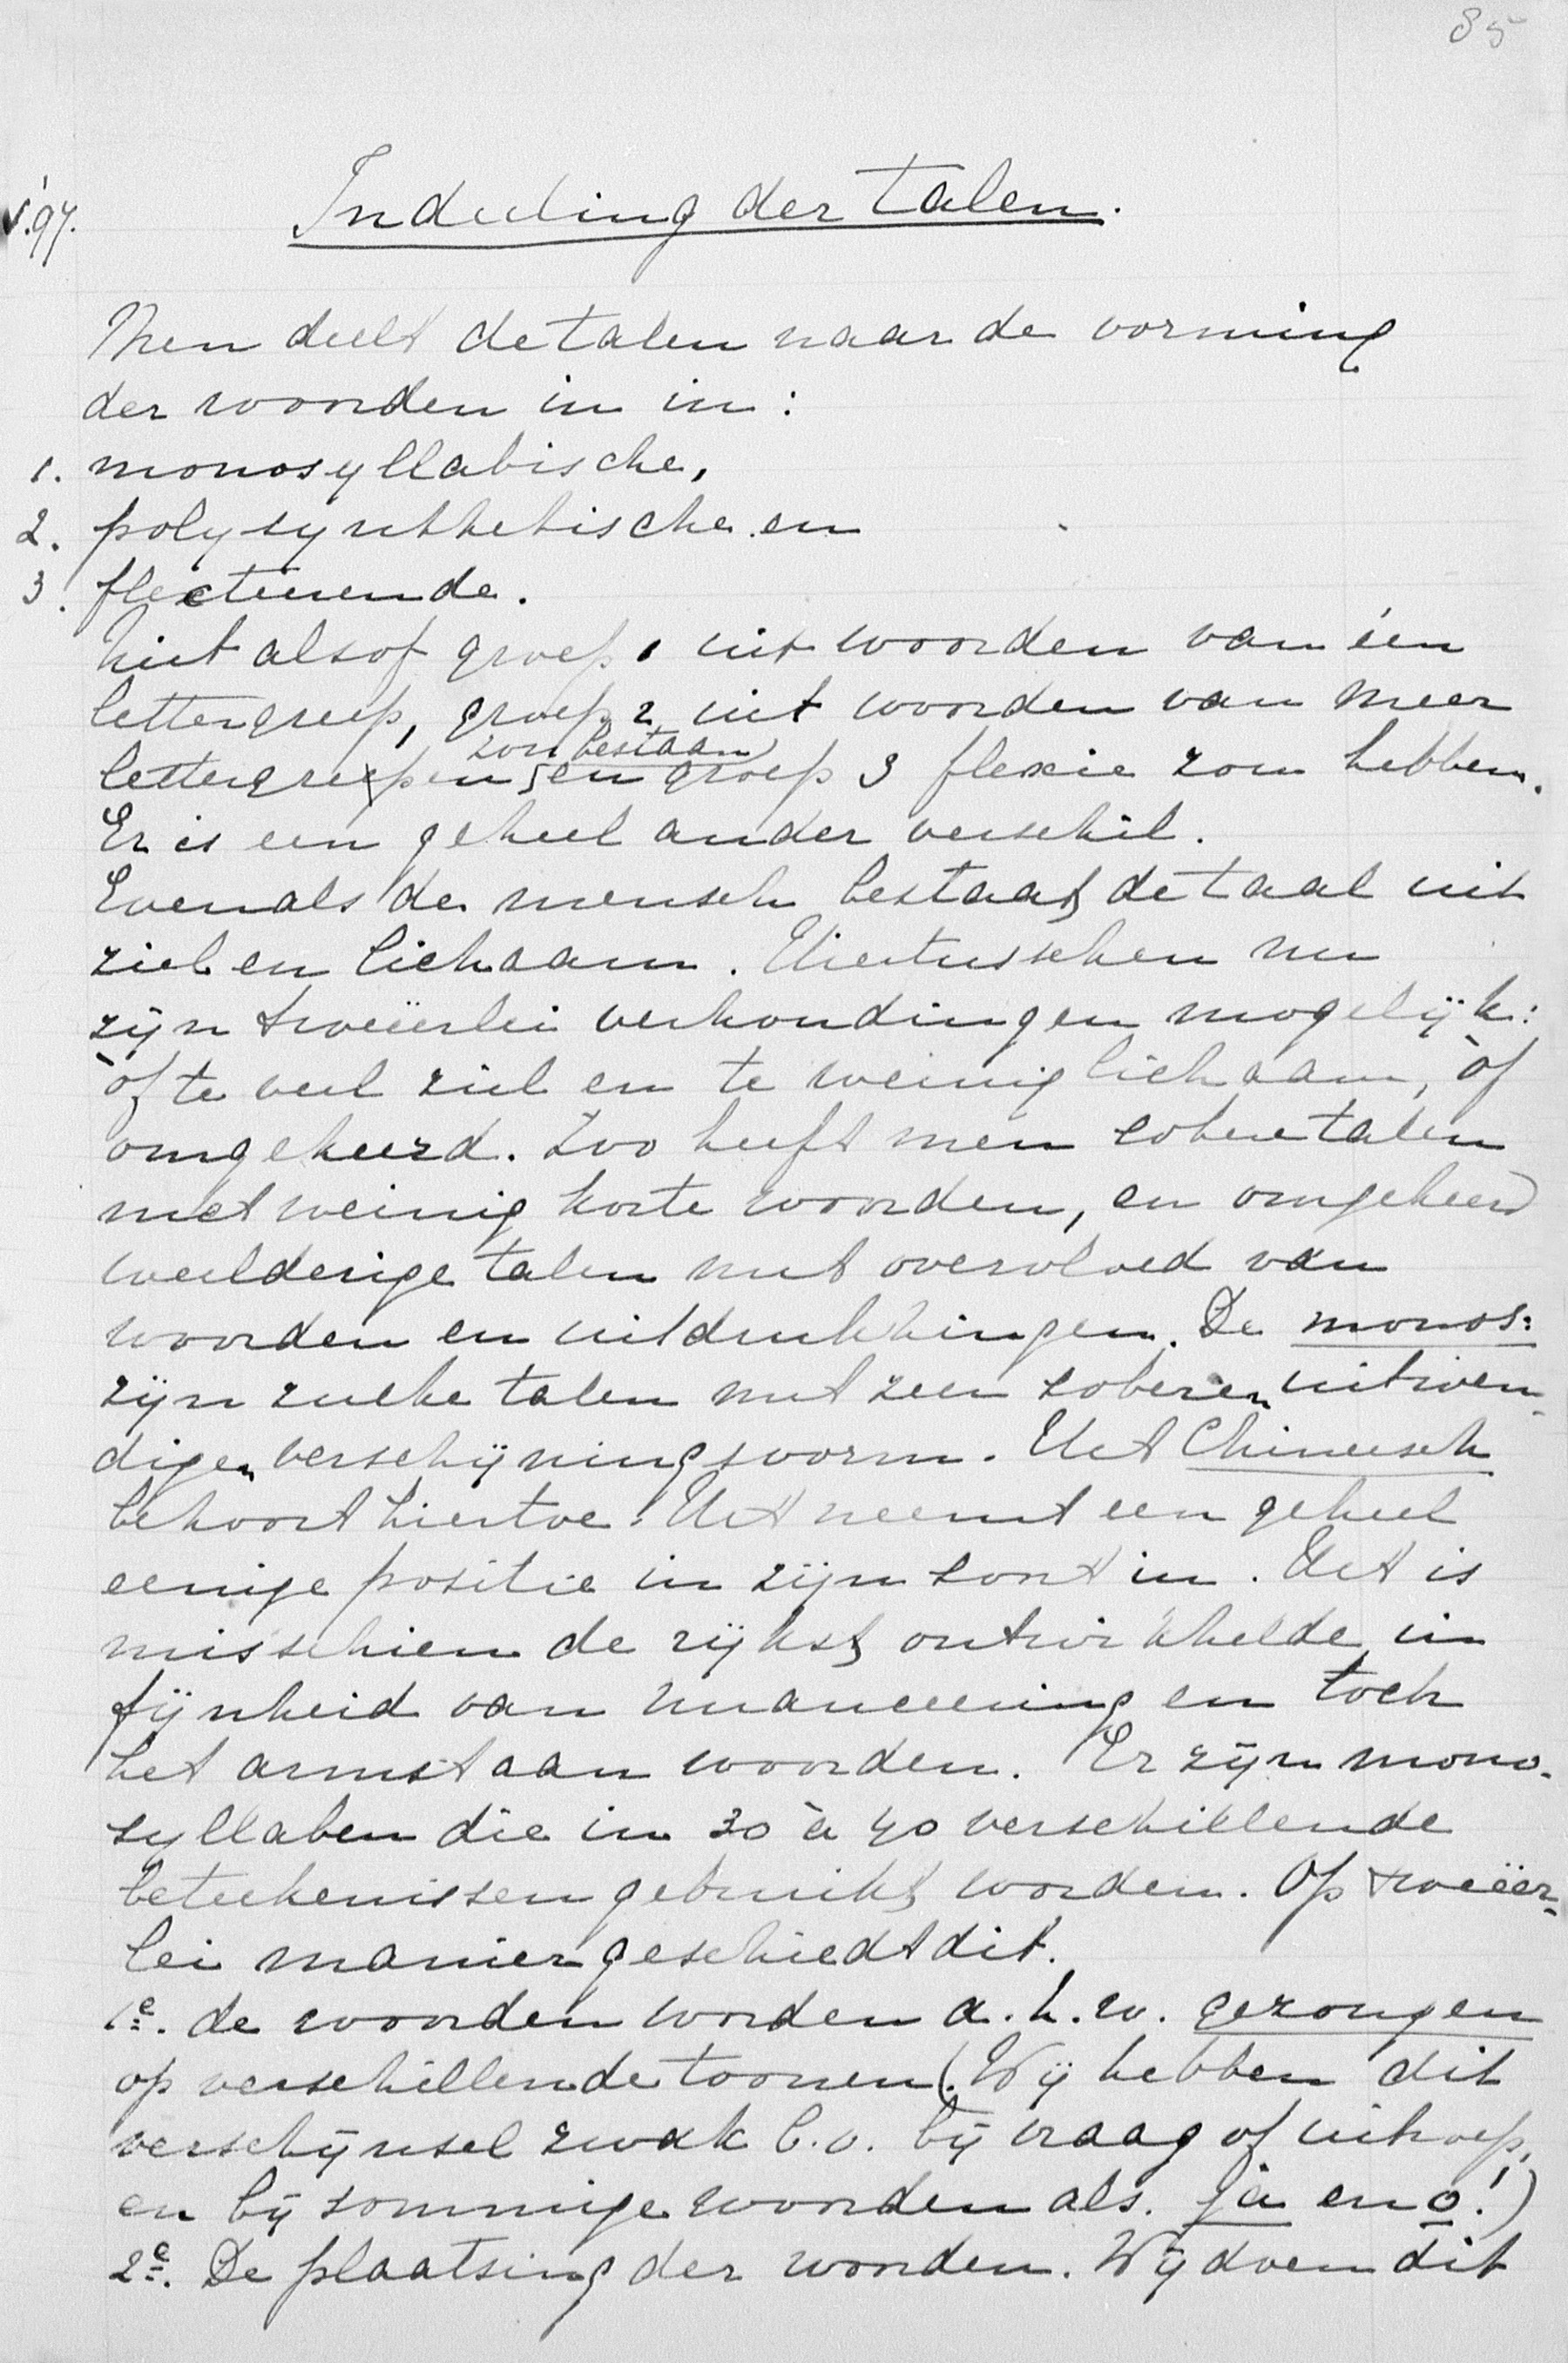 85
v.'97.
Indeeling der talen.
Men deelt de talen naar de vorming
der woorden in in:
1. monosyllabische,
2. polysynthetische en
3. flecteerende.
Niet alsof groep 1 uit woorden van één
lettergreep, groep 2 uit woorden van meer
zou bestaan
lettergrepen, en groep 3 flexie zou hebben.
Er is een geheel ander verschil.
Evenals de mensch bestaat de taal uit
ziel en lichaam. Hiertusschen nu
zijn tweeërlei verhoudingen mogelijk:
òf te veel ziel en te weinig lichaam, òf
omgekeerd. Zoo heeft men sobere talen
met weinig korte woorden, en omgekeerd
weelderige talen met overvloed van
woorden en uitdrukkingen. De monos:
zijn zulke talen met zeer soberen uitwen-
digen verschijningsvorm. Het Chineesch
behoort hiertoe. Het neemt een geheel
eenige positie in zijn soort in. Het is
misschien de rijkst ontwikkelde in
fijnheid van nuanceering en toch
het armst aan woorden. Er zijn mono-
syllaben die in 30 à 40 verschillende
beteekenissen gebruikt worden. Op tweeër-
lei manier geschiedt dit.
1e. de woorden worden a.h.w. gezongen
op verschillende toonen. (Wij hebben dit
verschijnsel zwak b.v. bij vraag of uitroep,
en bij sommige woorden als. ja en o!)
2e. De plaatsing der woorden. Wij doen dit